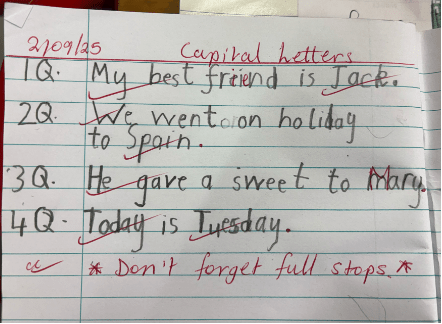 2/09/25 Capital Letters
1Q. My best friend is Jack.
2Q. We went on holiday
to Spain.
3Q. He gave a sweet to Mary.
4Q. Today is Tuesday.
* Don't forget full stops. *